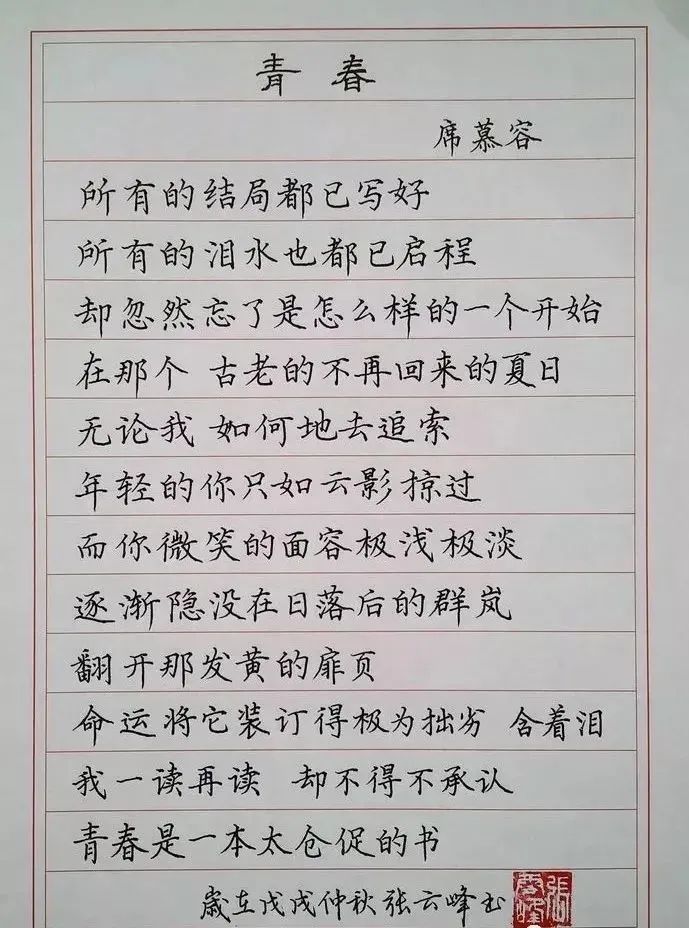 青春
席慕容
所有的结局都已写好
所有的泪水也都已启程
却忽然忘了是怎么样的一个开始
在那个 古老的不再回来的夏日
无论我 如何地去追索
年轻的你只如云影掠过
而你微笑的面容极浅极淡
逐渐隐没在日落后的群岚
翻开那发黄的扉页
命运将它装订得极为拙劣 含着泪
我一读再读 却不得不承认
青春是一本太仓促的书
岁在戊戌仲秋张云峰书